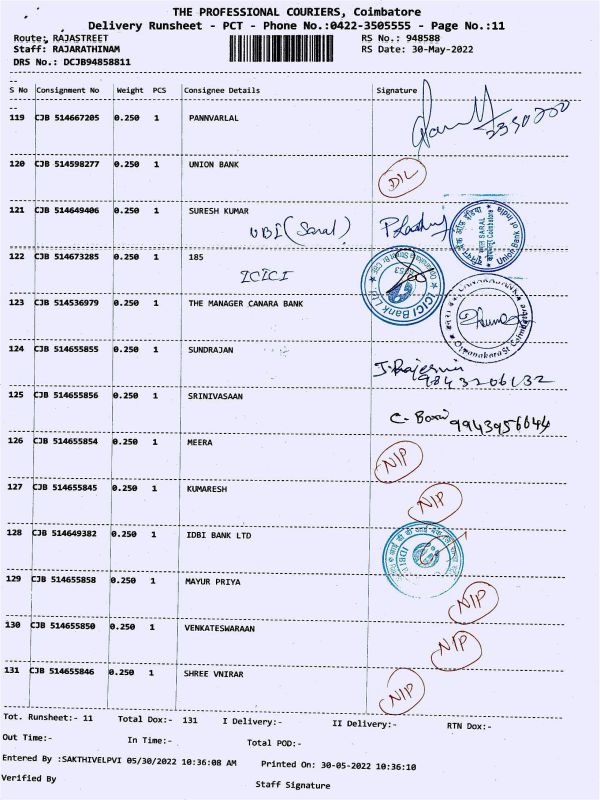 THE PROFESSIONAL COURIERS, Coimbatore
Delivery Runsheet - PCT - Phone No.:0422-3505555 - Page No.:11
Route: RAJASTREET RS No.: 948588
Staff: RAJARATHINAM RS Date: 30-May-2022
DRS No.: DCJB94858811
S No Consignment No Weight PCS Consignee Details Signature
119 CJB 514667205 0.250 1 PANNVARLAL
120 CJB 514598277 0.250 1 UNION BANK DIL
121 CJB 514649406 0.250 1 SURESH KUMAR
UBI (Saral)
122 CJB 514673285 0.250 1 185
ICICI
ICICI Bank Ltd
123 CJB 514536979 0.250 1 THE MANAGER CANARA BANK
124 CJB 514655855 0.250 1 SUNDRAJAN
9843206132
125 CJB 514655856 0.250 1 SRINIVASAAN
9943956644
126 CJB 514655854 0.250 1 MEERA NIP
127 CJB 514655845 0.250 1 KUMARESH NIP
128 CJB 514649382 0.250 1 IDBI BANK LTD
129 CJB 514655858 0.250 1 MAYUR PRIYA NIP
130 CJB 514655850 0.250 1 VENKATESWARAAN NIP
131 CJB 514655846 0.250 1 SHREE VNIRAR NIP
Tot. Runsheet:- 11 Total Dox:- 131 I Delivery:- II Delivery:- RTN Dox:-
Out Time:- In Time:- Total POD:-
Entered By :SAKTHIVELPVI 05/30/2022 10:36:08 AM Printed On: 30-05-2022 10:36:10
Verified By Staff Signature